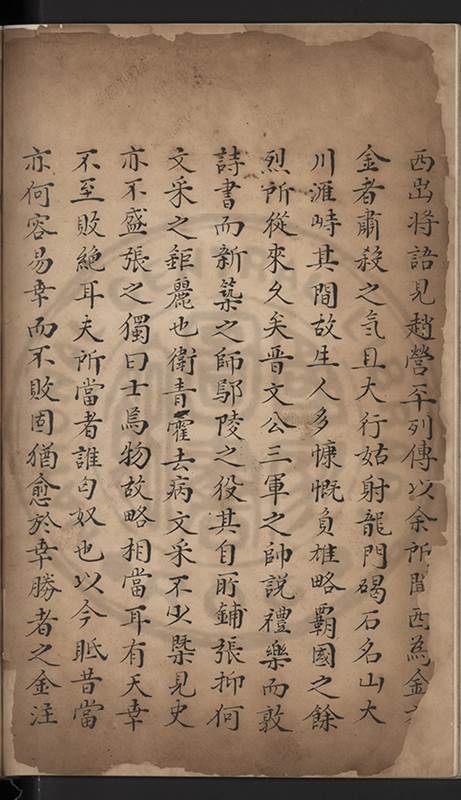 西出将語見趙營平列傳以余所聞西為金
金者肅殺之氣且大行姑射龍門碣石名山大
川漄峙其間故生人多慷慨負雄略霸國之餘
烈所從來久矣晋文公三軍之帥説禮樂而敦
詩書而新築之師鄢陵之役其自所鋪張抑何
文采之鉅麗也衛青霍去病文采不少槩見史
亦不盛張之獨曰士馬物故略相當耳有天幸
不至敗絶耳夫所當者誰匈奴也以今眡昔當
亦何容易幸而不敗固猶愈於幸勝者之金注